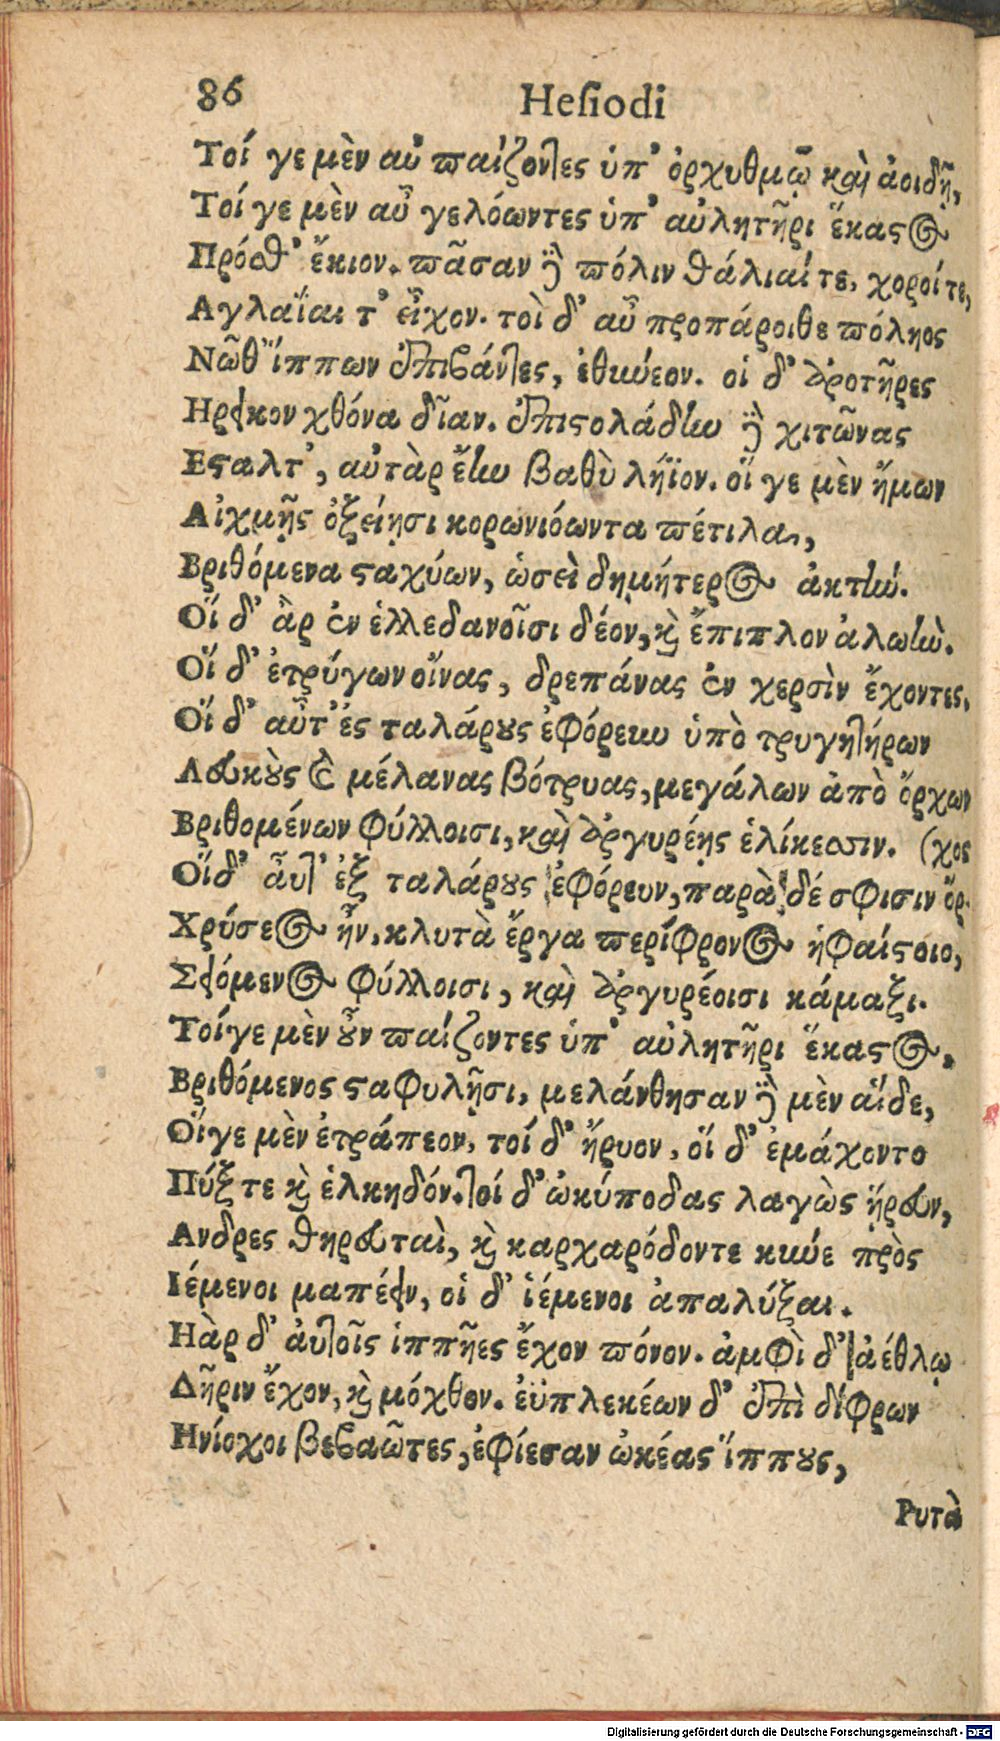 86 Hesiodi
Τοί γε μὲν αὖ παίζοντες ὑπ' ὀρχυθμῷ καὶ ἀοιδῇ,
Τοί γε μὲν αὖ γελόωντες ὑπ' αὐλητῆρι ἕκαστος
Πρόσθ' ἔκιον. πᾶσαν δὲ πόλιν θάλιαί τε, χοροί τε,
Αγλαΐαι τ' εἶχον. τοὶ δ' αὖ προπάροιθε πόληος
Νῶθ' ἵππων ἐπιβάντες, ἐθύνεον. οἱ δ' ἀροτῆρες
Ηρεικον χθόνα δῖαν. ἐπιστολάδην δὲ χιτῶνας
Εσταλτ', αὐτὰρ ἔην βαθὺ λήϊον. οἵ γε μὲν ἤμων
Αἰχμῇς ὀξείῃσι κορωνιόωντα πέτιλα,
Βριθόμενα σταχύων, ὡσεὶ δημήτερος ἀκτήν.
Οἵ δ' ἂρ ἐν ἐλλεδανοῖσι δέον, καὶ ἔπιπλον ἀλωήν.
Οἵ δ' ἐτρύγων οἴνας, δρεπάνας ἐν χερσὶν ἔχοντες,
Οἵ δ' αὖτ' ἐς ταλάρους ἐφόρευν ὑπὸ τρυγητήρων
Λευκοὺς καὶ μέλανας βότρυας, μεγάλων ἀπὸ ὄρχων
Βριθομένων φύλλοισι, καὶ ἀργυρέῃς ἑλίκεσσιν. (χος
Οἵ δ' αὖτ' ἐξ ταλάρους ἐφόρευν, παρὰ δέ σφισιν ὄρ-
Χρύσεος ἦν, κλυτὰ ἔργα περίφρονος ἡφαίστοιο,
Σειόμενος φύλλοισι, καὶ ἀργυρέοισι κάμαξι.
Τοί γε μὲν οὖν παίζοντες ὑπ' αὐλητῆρι ἕκαστος,
Βριθόμενος σταφυλῇσι, μελάνθησαν δὲ μὲν αἵδε,
Οἵ γε μὲν ἐτράπεον, τοί δ' ἤρυον, οἵ δ' ἐμάχοντο
Πύξ τε καὶ ἑλκηδόν. τοί δ' ὠκύποδας λαγὼς ᾕρευν,
Ανδρες θηρευταὶ, καὶ καρχαρόδοντε κύνε πρὸς
Ιέμενοι μαπέειν, οἱ δ' ἱέμενοι ἀπαλύξαι.
Ηὰρ δ' αὐτοῖς ἱππῆες ἔχον πόνον. ἀμφὶ δ' ἀέθλῳ
Δῆριν ἔχον, καὶ μόχθον. ἐϋπλεκέων δ' ἐπὶ δίφρων
Ηνίοχοι βεβαῶτες, ἐφίεσαν ὠκέας ἵππους,
Ρυτὰ
Digitalisierung gefördert durch die Deutsche Forschungsgemeinschaft - DFG